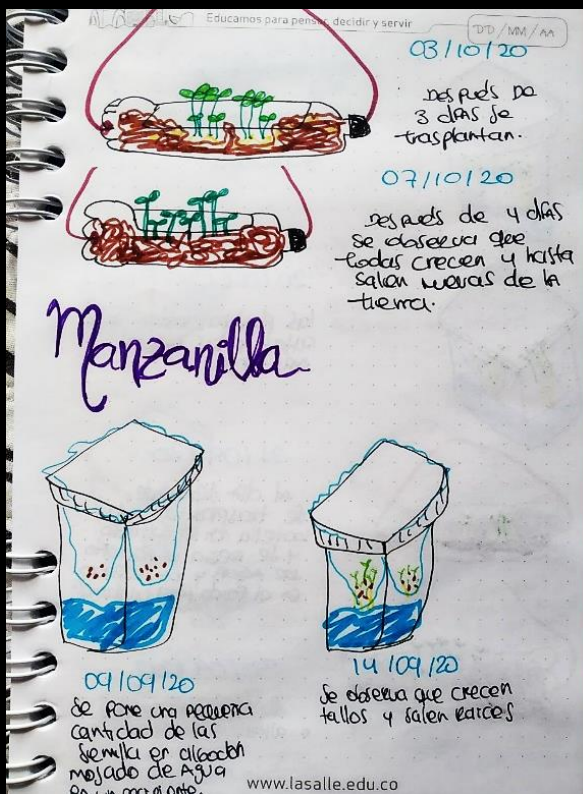 Educamos para pensar, decidir y servir
DD / MM / AA
03/10/20
Después De
3 días se
trasplantan.
07/10/20
Después de 4 días
se observa que
todas crecen y hasta
salen nuevas de la
tierra.
Manzanilla
09/09/20
Se pone una pequeña
cantidad de las
semilla en algodón
mojado de Agua
en un
14/09/20
Se observa que crecen
tallos y salen raices
www.lasalle.edu.co